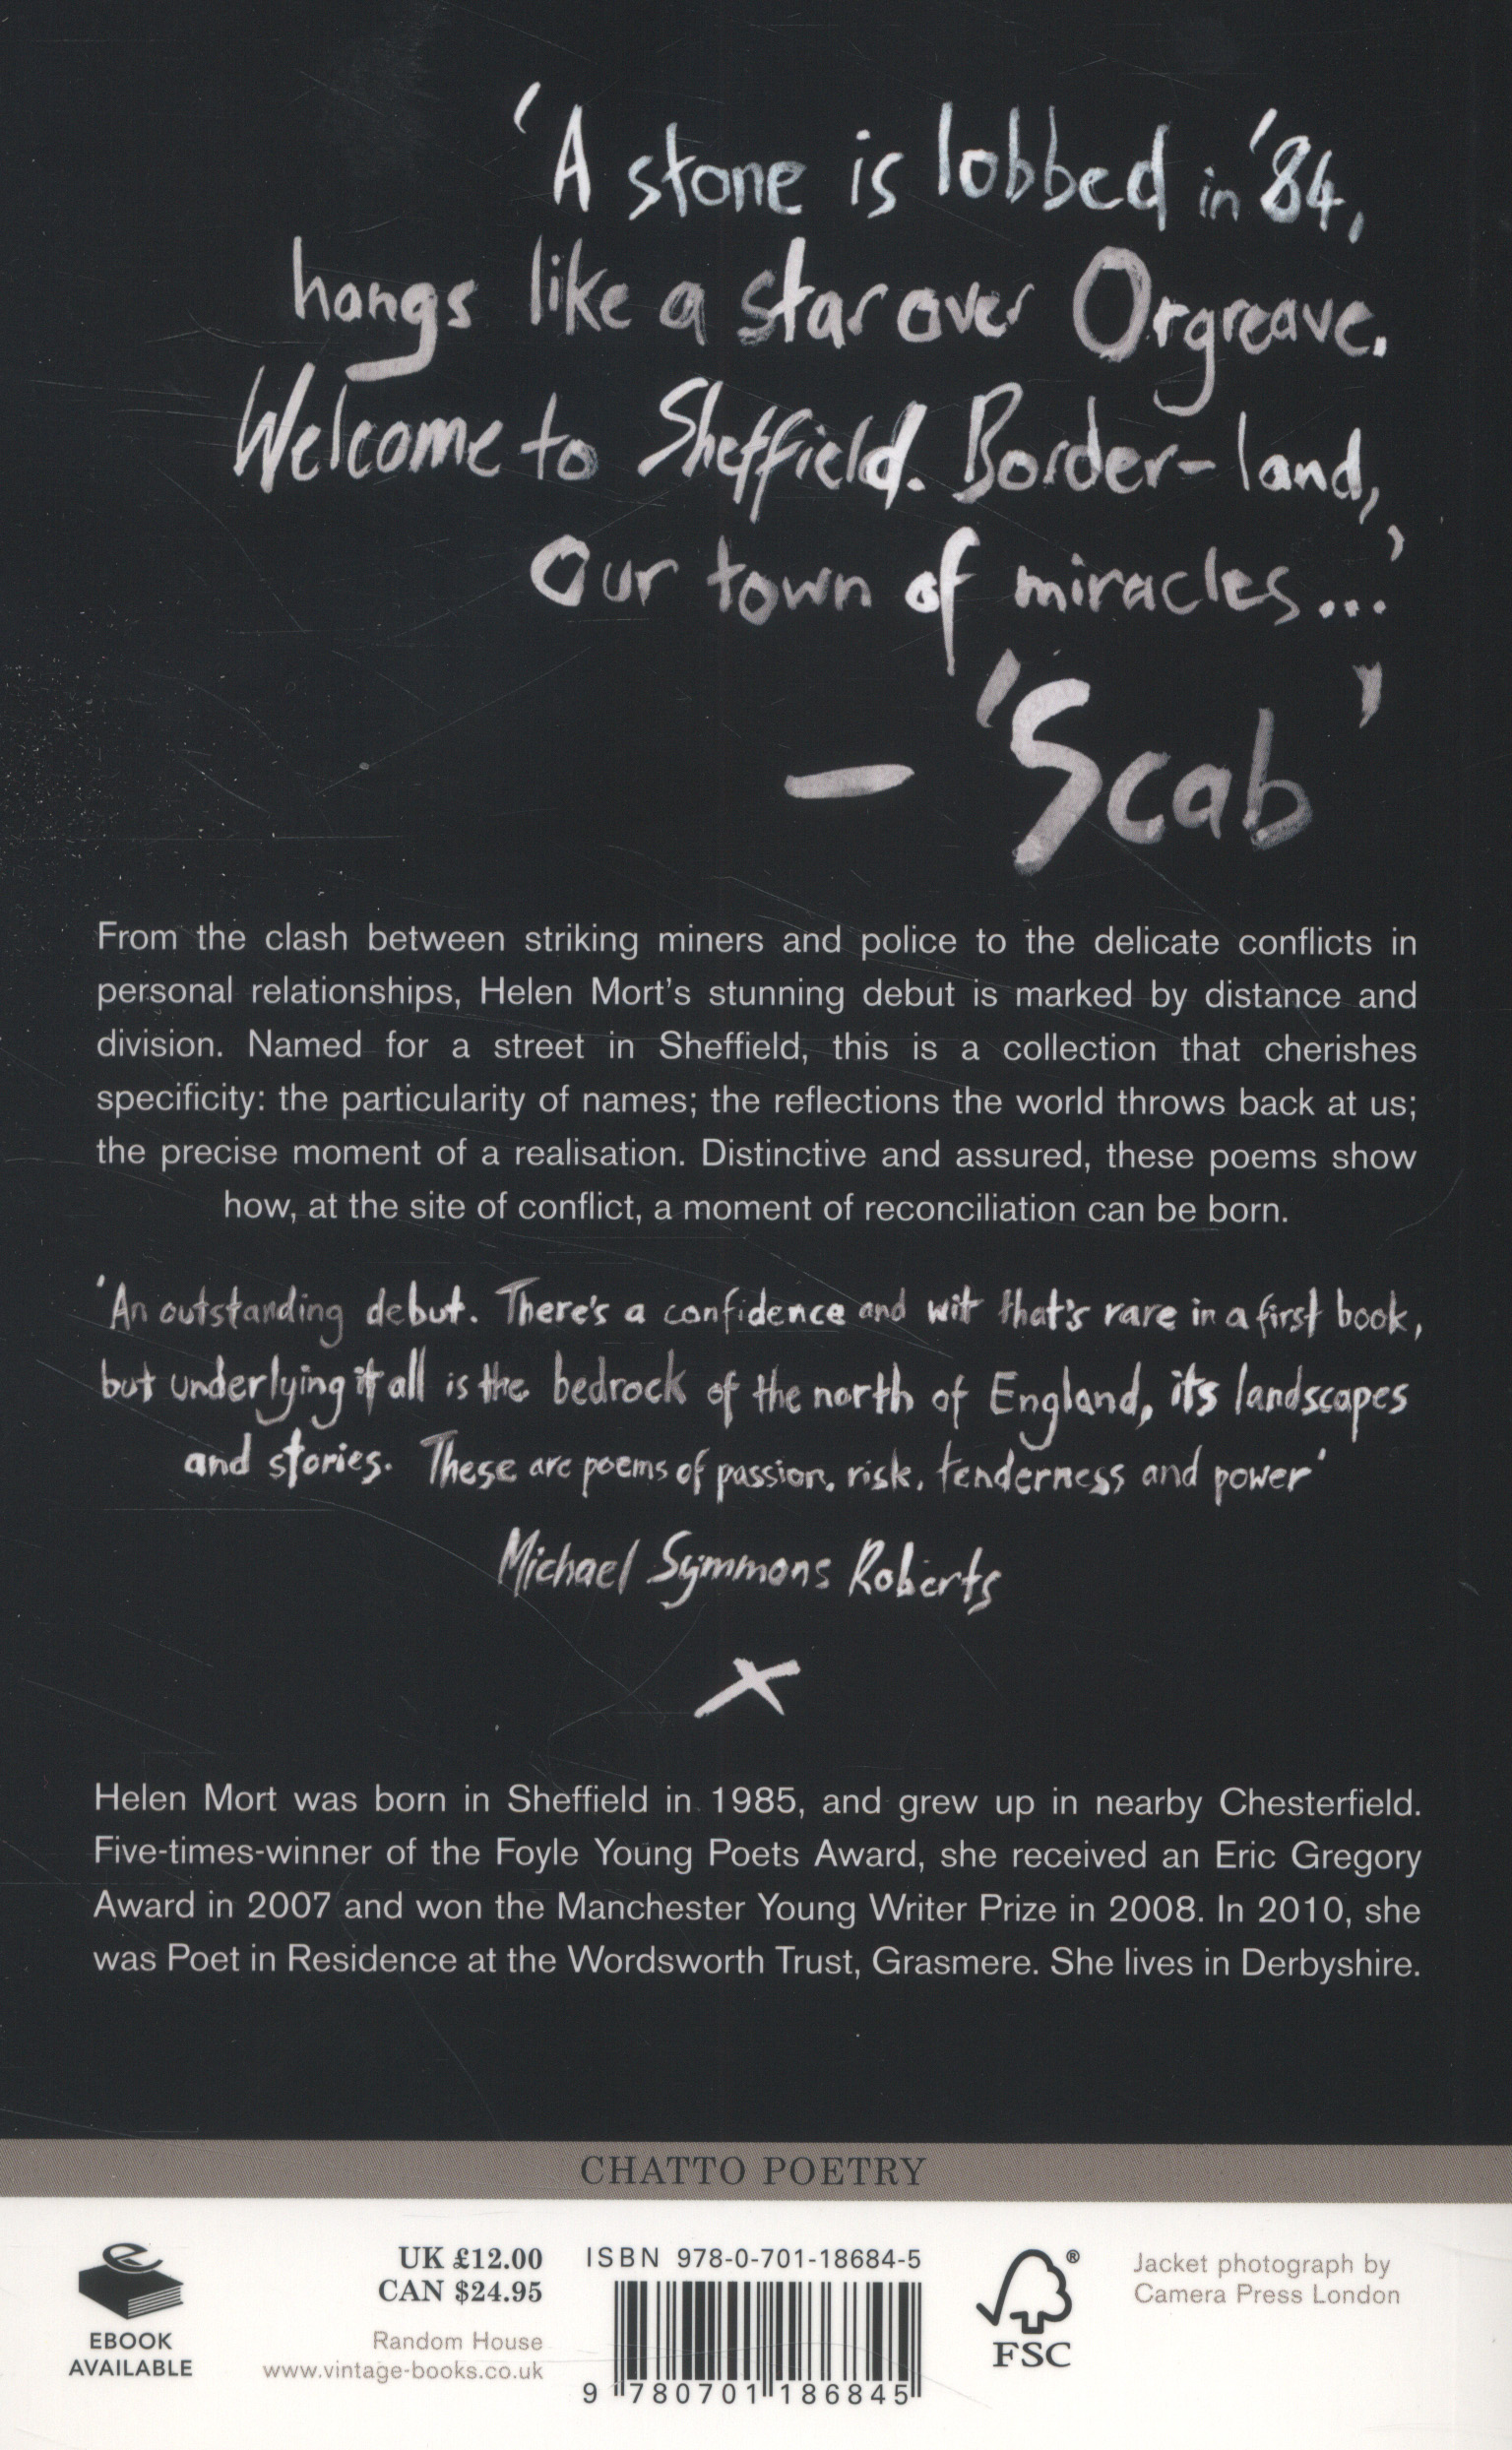 'A stone is lobbed in '84,
hangs like a star over Orgreave.
Welcome to Sheffield. Border-land,
Our town of miracles...'
— 'Scab'
From the clash between striking miners and police to the delicate conflicts in
personal relationships, Helen Mort's stunning debut is marked by distance and
division. Named for a street in Sheffield, this is a collection that cherishes
specificity: the particularity of names; the reflections the world throws back at us;
the precise moment of a realisation. Distinctive and assured, these poems show
how, at the site of conflict, a moment of reconciliation can be born.
'An outstanding debut. There's a confidence and wit that's rare in a first book,
but underlying it all is the bedrock of the north of England, its landscapes
and stories. These are poems of passion, risk, tenderness and power'
Michael Symmons Roberts
X
Helen Mort was born in Sheffield in 1985, and grew up in nearby Chesterfield.
Five-times-winner of the Foyle Young Poets Award, she received an Eric Gregory
Award in 2007 and won the Manchester Young Writer Prize in 2008. In 2010, she
was Poet in Residence at the Wordsworth Trust, Grasmere. She lives in Derbyshire.
CHATTO POETRY
EBOOK
AVAILABLE
UK £12.00
CAN $24.95
Random House
www.vintage-books.co.uk
ISBN 978-0-701-18684-5
9 780701 186845
®
FSC
Jacket photograph by
Camera Press London